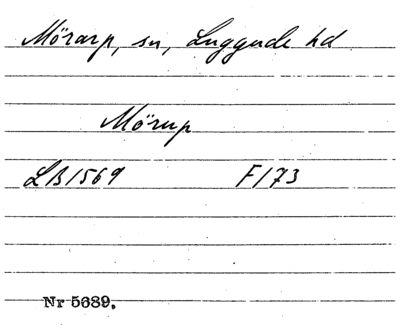 Mörarp, sn, Luggude hd
Mörup
LB1569 F173
Nr 5689.